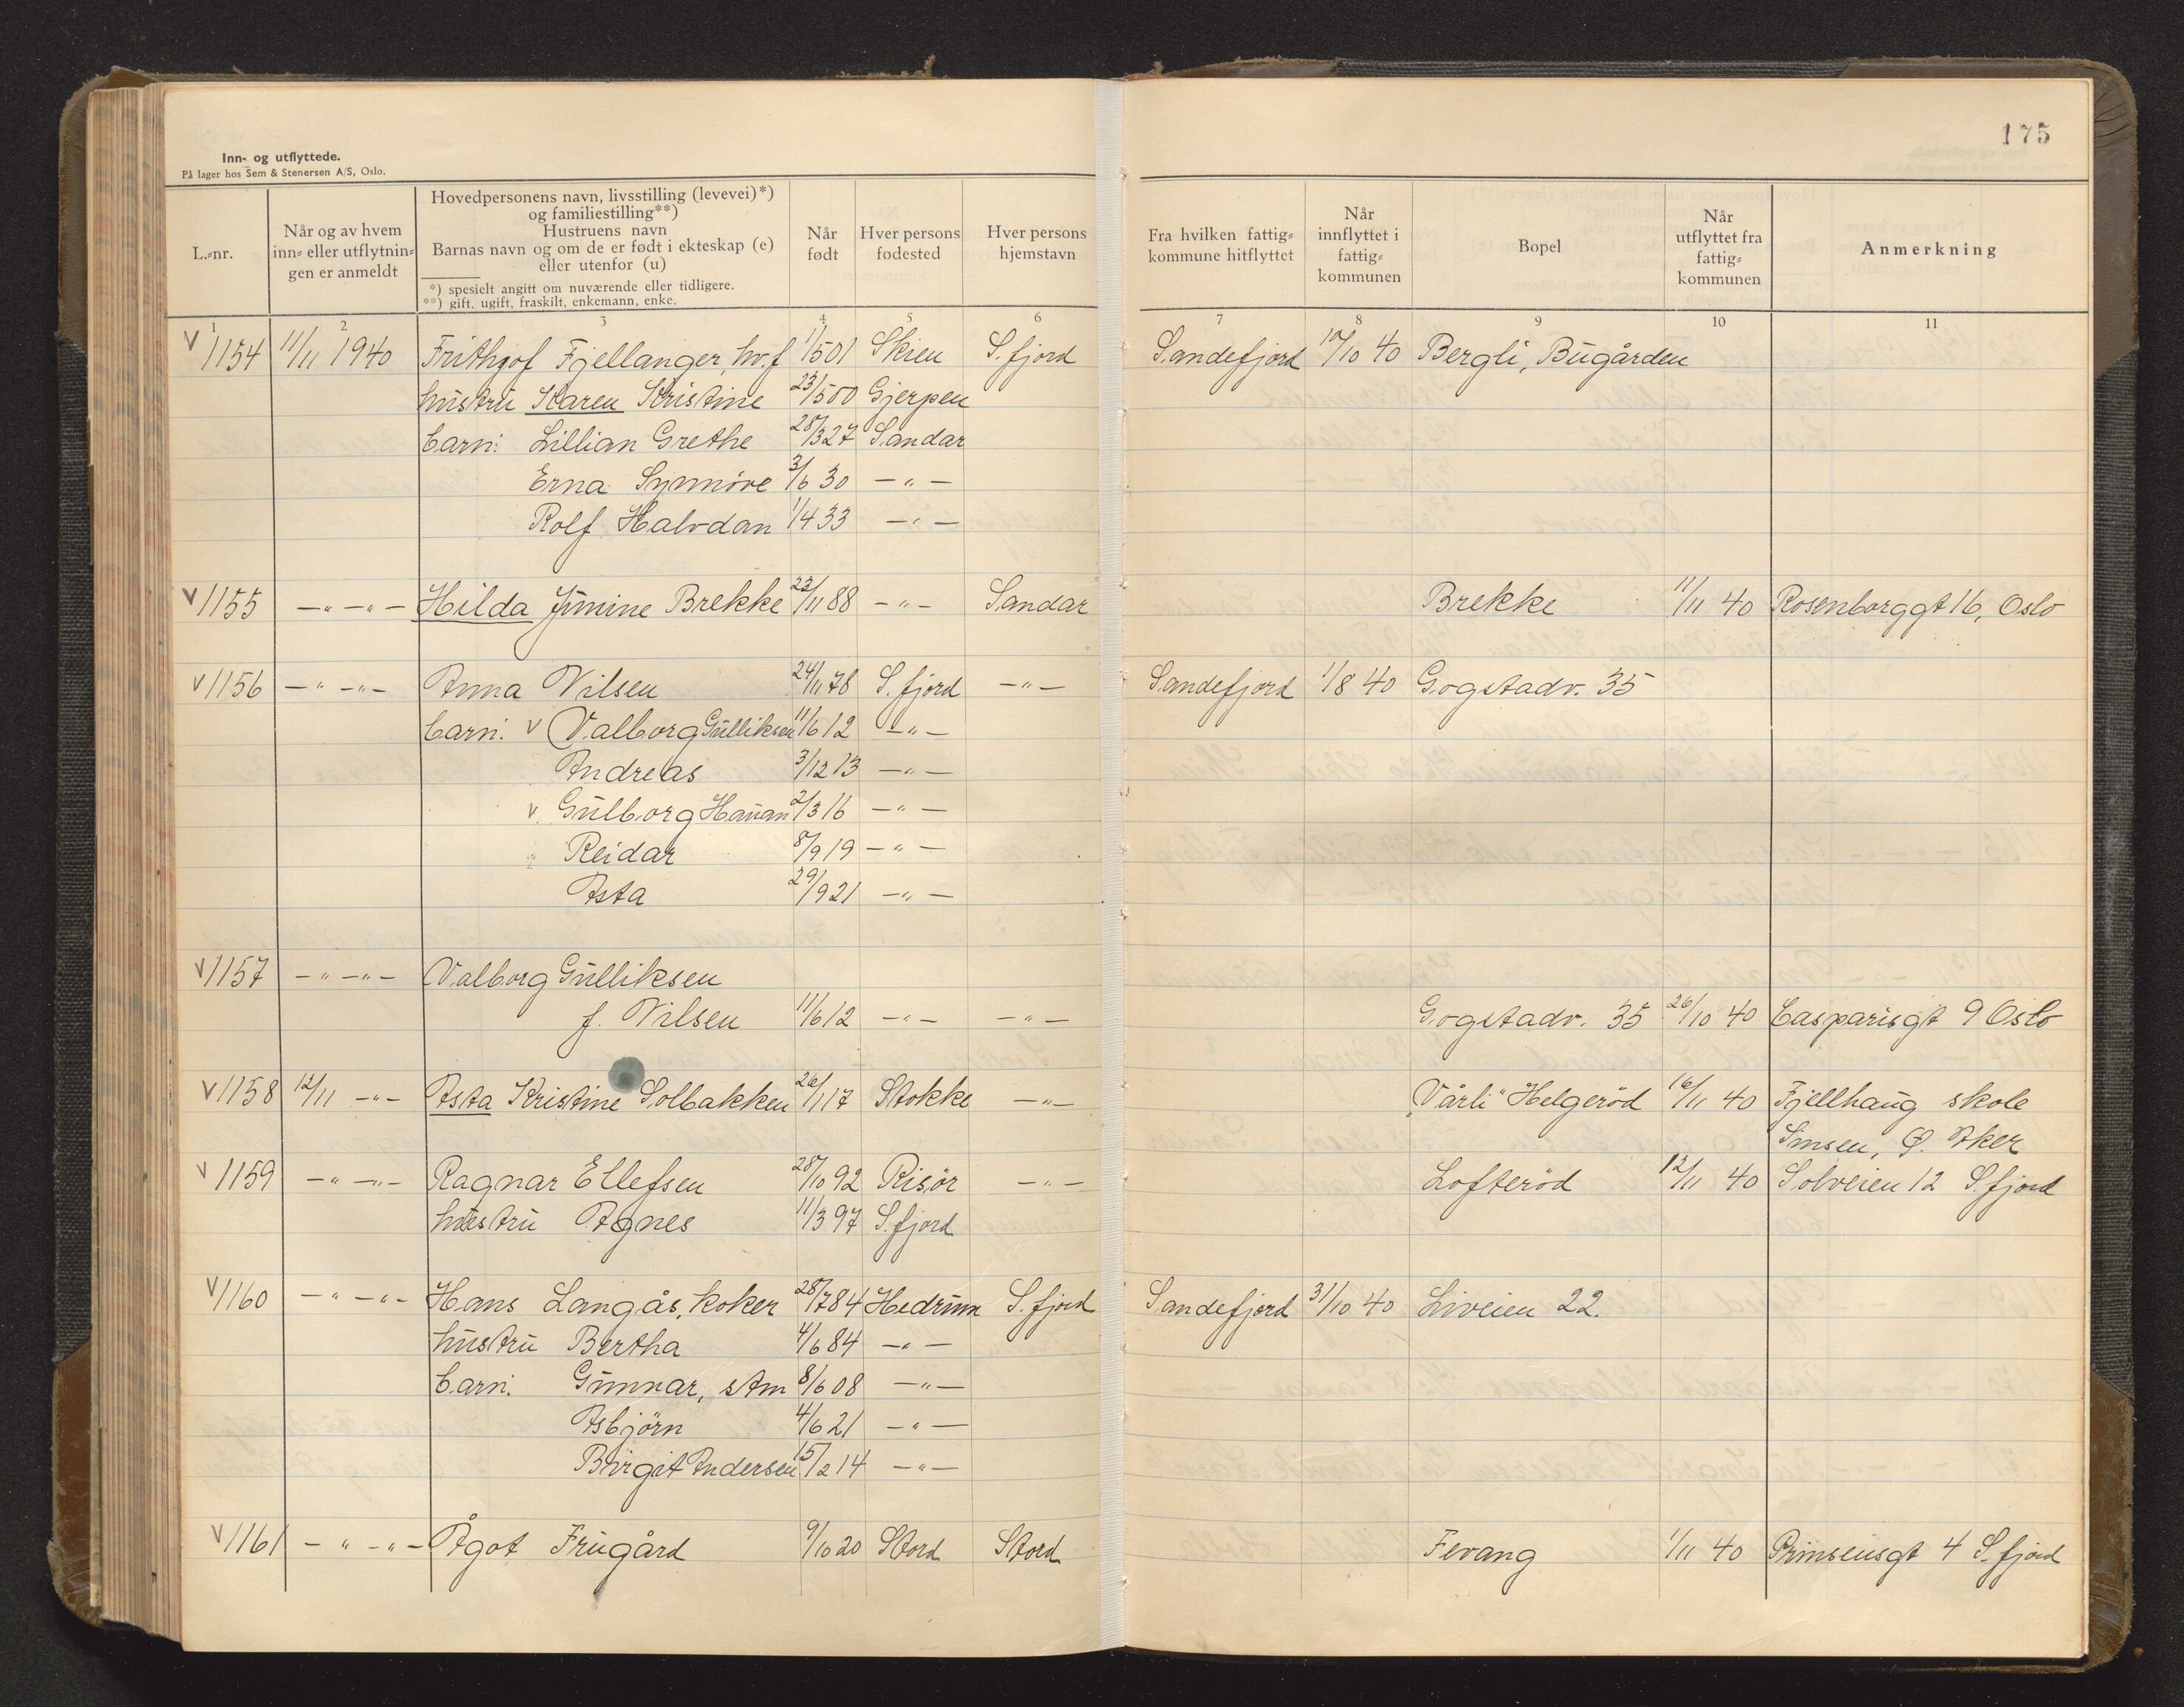 175
Inn- og utflyttede.
På lager hos Sem & Stenersen A/S, Oslo.
L.-nr.
Når og av hvem
inn- eller utflytnin-
gen er anmeldt
Hovedpersonens navn, livsstilling (levevei)*)
og familiestilling**)
Hustruens navn
Barnas navn og om de er født i ekteskap (e)
eller utenfor (u)
*) spesielt angitt om nuværende eller tidligere.
**) gift, ugift, fraskilt, enkemann, enke.
Når
født
Hver persons
fødested
Hver persons
hjemstavn
Fra hvilken fattig-
kommune hitflyttet
Når
innflyttet i
fattig-
kommunen
Bopel
Når
utflyttet fra
fattig-
kommunen
Anmerkning
1 2 3 4 5 6 7 8 9 10 11
v 1154 11/11 1940 Frithjof Fjellanger, hv.f 1/5 01 Skien S.fjord Sandefjord 10/10 40 Bergli, Bugården
hustru Karen Kristine 23/5 00 Gjerpen
barn: Lillian Grethe 28/3 27 Sandar
Erna Synnöve 3/6 30 —"—
Rolf Halvdan 1/4 33 —"—
v 1155 —"—"— Hilda Jimine Brekke 23/11 88 —"— Sandar Brekke 11/11 40 Rosenborggt 16, Oslo
v 1156 —"—"— Anna Nilsen 24/11 78 S.fjord —"— Sandefjord 1/8 40 Gogstadv. 35
barn: v Valborg Gulliksen 11/6 12 —"—
Andreas 3/12 13 —"—
v. Gulborg Hauan 2/3 16 —"—
Reidar 8/9 19 —"—
Asta 29/9 21 —"—
v 1157 —"—"— Valborg Gulliksen
f. Nilsen 11/6 12 —"— —"— Gogstadv. 35 26/10 40 Casparisgt 9 Oslo
v 1158 12/11 —"— Asta Kristine Solbakken 26/1 17 Stokke —"— „Vårli" Helgeröd 16/11 40 Fjellhaug skole
Sinsen, Ø. Aker
v 1159 —"—"— Ragnar Ellefsen 28/10 92 Risör —"— Lofteröd 12/11 40 Solveien 12 S.fjord
hustru Agnes 11/3 97 S.fjord
v 1160 —"—"— Hans Langås, koker 28/7 84 Hedrum S.fjord Sandefjord 31/10 40 Liveien 22.
hustru Bertha 4/6 84 —"—
barn: Gunnar, stm 8/6 08 —"—
Asbjörn 4/6 21 —"—
Birgit Andersen 15/2 14 —"—
v 1161 —"—"— Ågot Frugård 9/10 20 Stord Stord Fevang 1/11 40 Prinsensgt 4 S.fjord